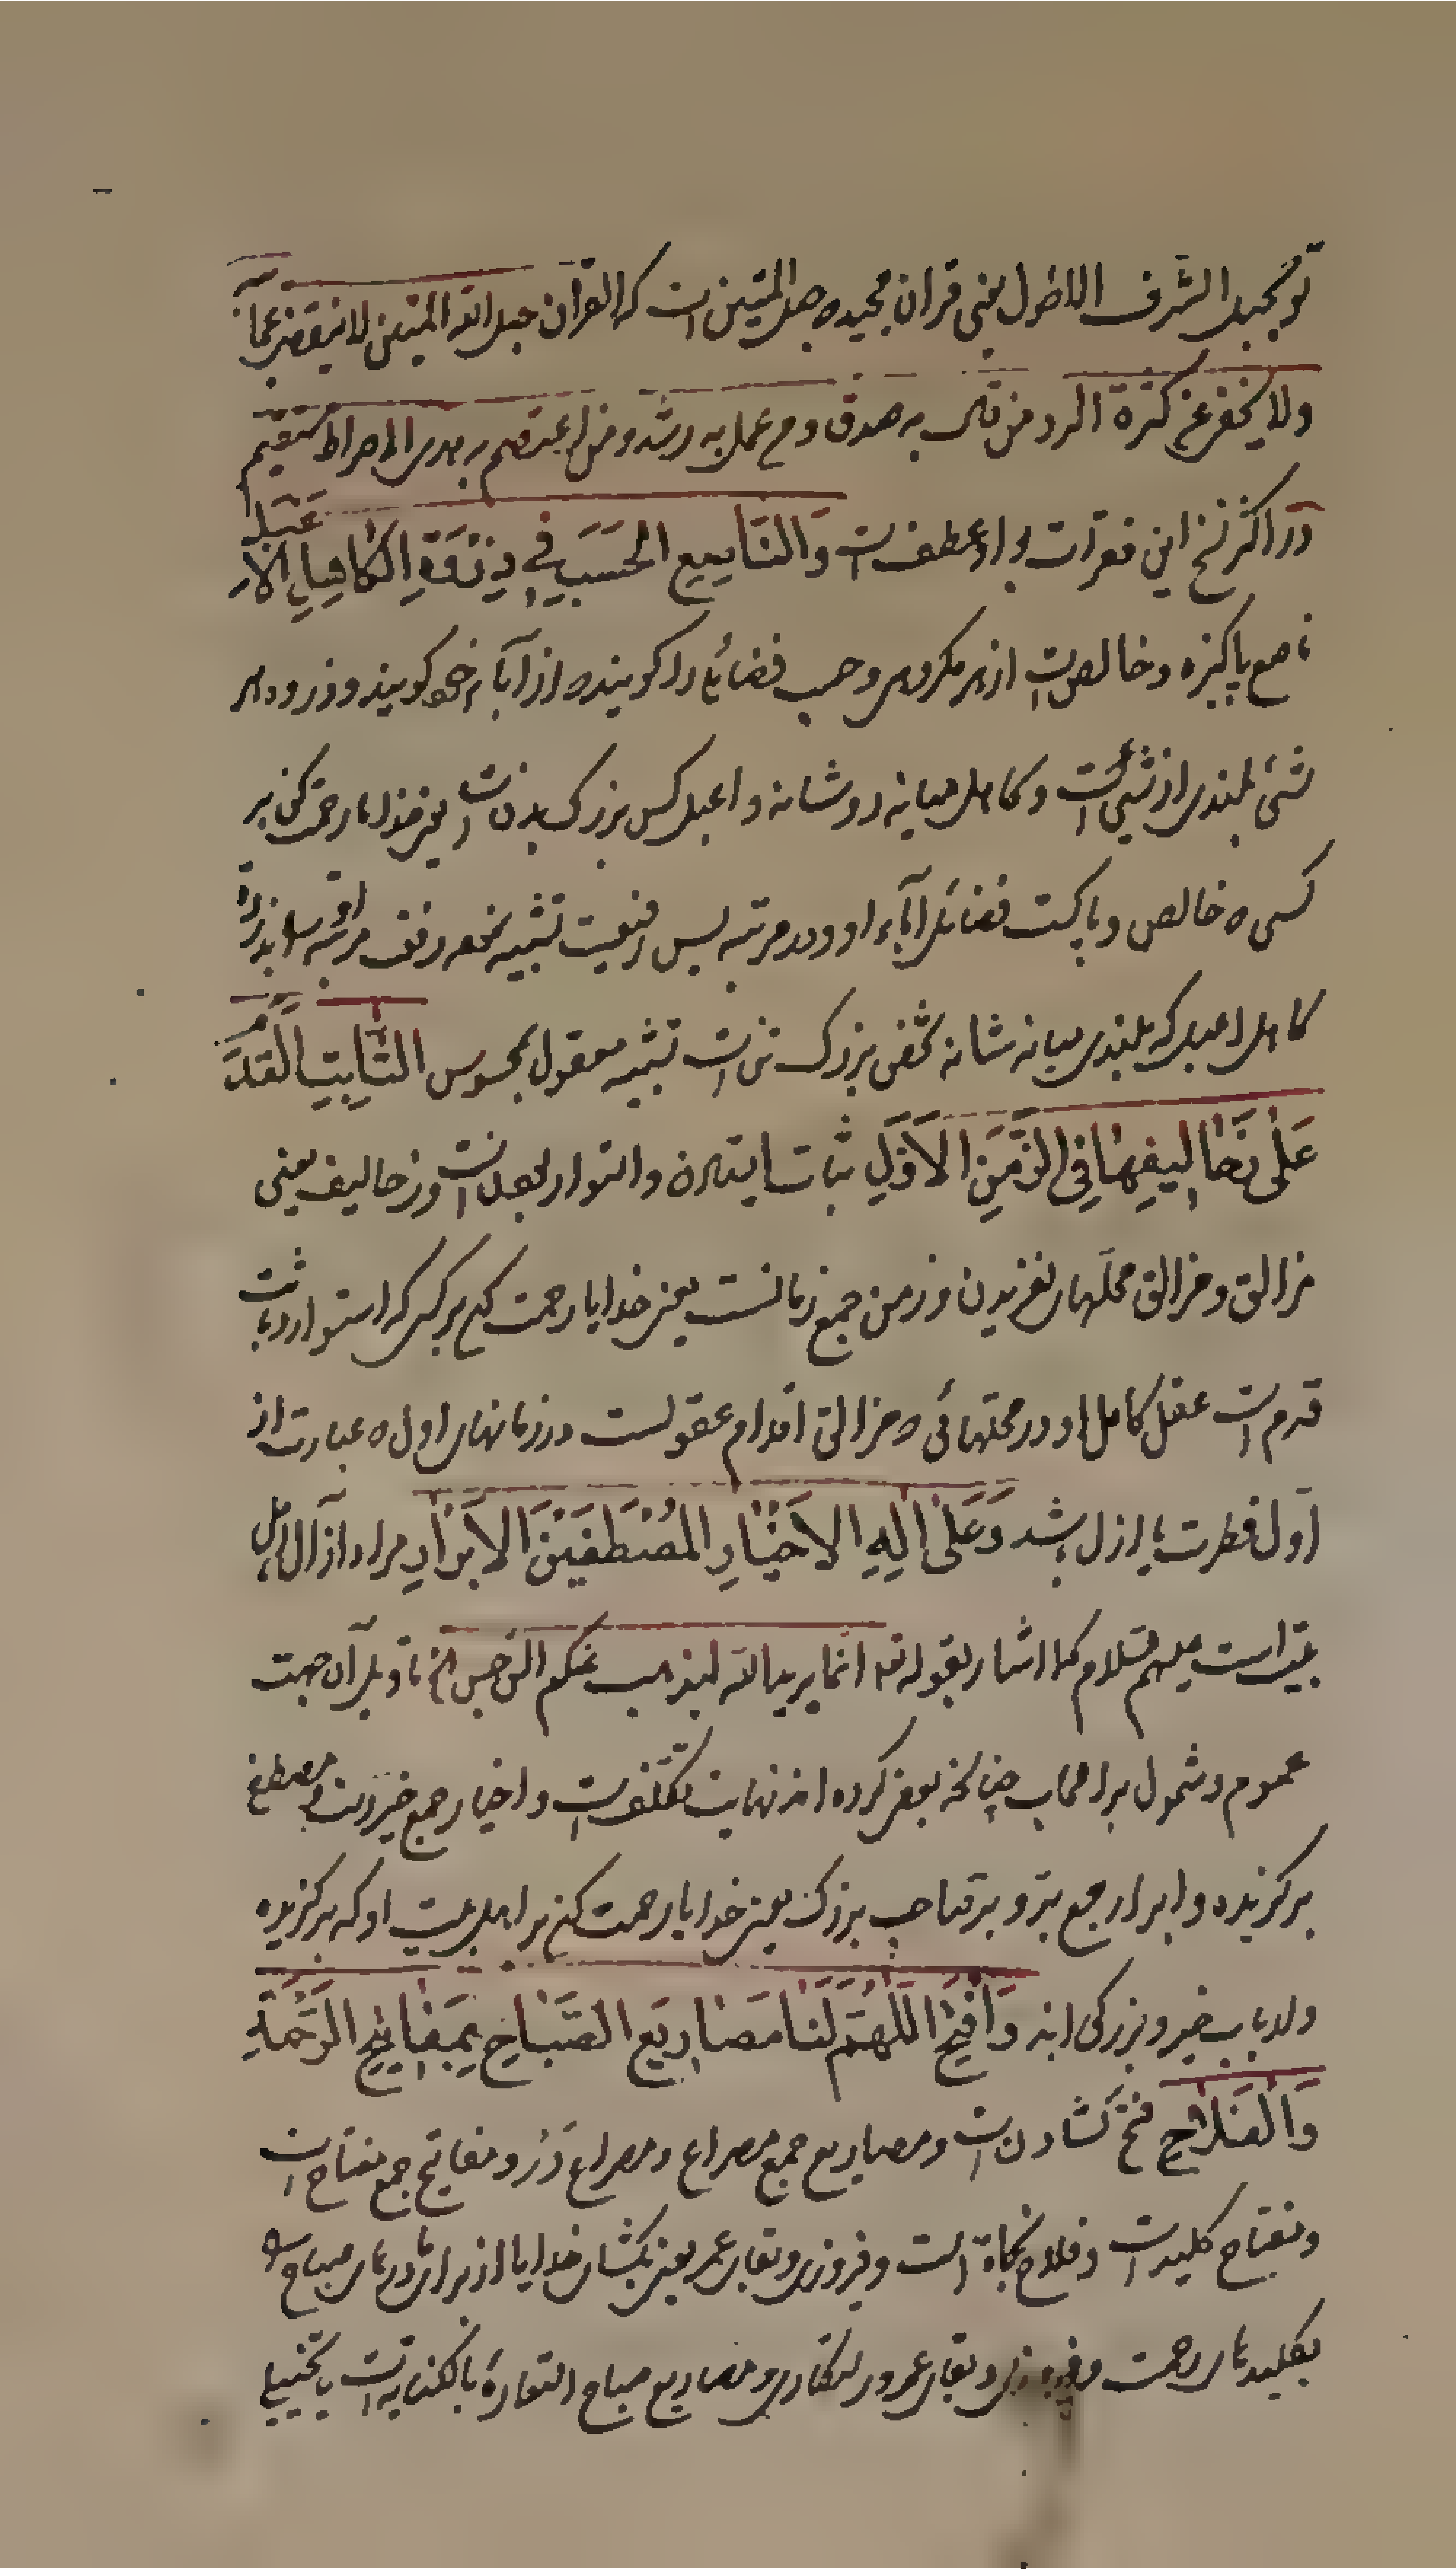 تو بحبل الشرف الاطول یعنی قران مجید ه حبل المتین است که القرآن حبل الله المتین لا ینقضی عجائبه
ولا یخلق عن کثرة الرد من قال به صدق و من عمل به رشد و من اعتصم به هدی الی صراط مستقیم
در اکثر نسخ این فقرات بواو عطف است وَالنّاصِعِ الحَسَبِ فی ذِرْوَةِ الکاهِلِ الاَعْبَلِ
ناصع پاکیزه و خالص است از هر مکروهی و حسب فضائلی را کویند ه از آباء خود کویند و ذروه هر
شئ بلندی از شیئ است و کاهل میانه دو شانه و اعبل کس بزرک بدن است یعنی خدایا رحمت کن بر
کسی ه خالص و پاکست فضائل آباء او و در مرتبه پس رفعت تشبیه نموده رفعت مرتبه او را بذروة
کاهل اعبل که بلندی میانه شانه شخص بزرک تن است تشبیه معقول بمحسوس الثّابِتِ القَدَمِ
عَلی زَحالیفِها فِی الزَّمَنِ الاَوَّلِ ثبات ایستادن و استوار بودنست و زحالیف یعنی
مزالق و مزالق محلهای لغزیدن و زمن جمع زمانست یعنی خدایا رحمت کن بر کسی که استوار و ثابت
قدم است عقل کامل او در محلهائی ه مزالق اقدام عقولست در زمانهای اول ه عبارت از
اول فطرت یا ازل باشد وَعَلی الِهِ الاَخْیارِ المُصْطَفَیْنَ الاَبْرارِ مراد از آل اهل
بیت است علیهم السلام کما اشار بقوله تعه انما یرید الله لیذهب عنکم الرجس الخ تاویل آن جهت
عموم و شمول بر اصحاب چنانکه بعضی کرده اند نهایت تکلف است و اخیار جمع خیر است و مصطفی
برکزیده و ابرار جمع برّ و بر صاحب بزرک یعنی خدایا رحمت کن بر اهل بیت او که برکزیده
و ارباب خیر و بزرکی اند وَافْتَحِ اللّهُمَّ لَنا مَصاریعَ الصَّباحِ بِمَفاتیحِ الرَّحْمَةِ
وَالفَلاحِ فتح کشادن است و مصاریع جمع مصراع و مصراع در و مفاتیح جمع مفتاح است
و مفتاح کلید است و فلاح نجاة است و فیروزی و بقای عمر یعنی بکشای خدایا از برای ما درهای صباح را
بکلیدهای رحمت و فیروزی و بقای عمر و رستکاری و مصاریع صباح استعارۀ بالکنایه است یا تخییلیه